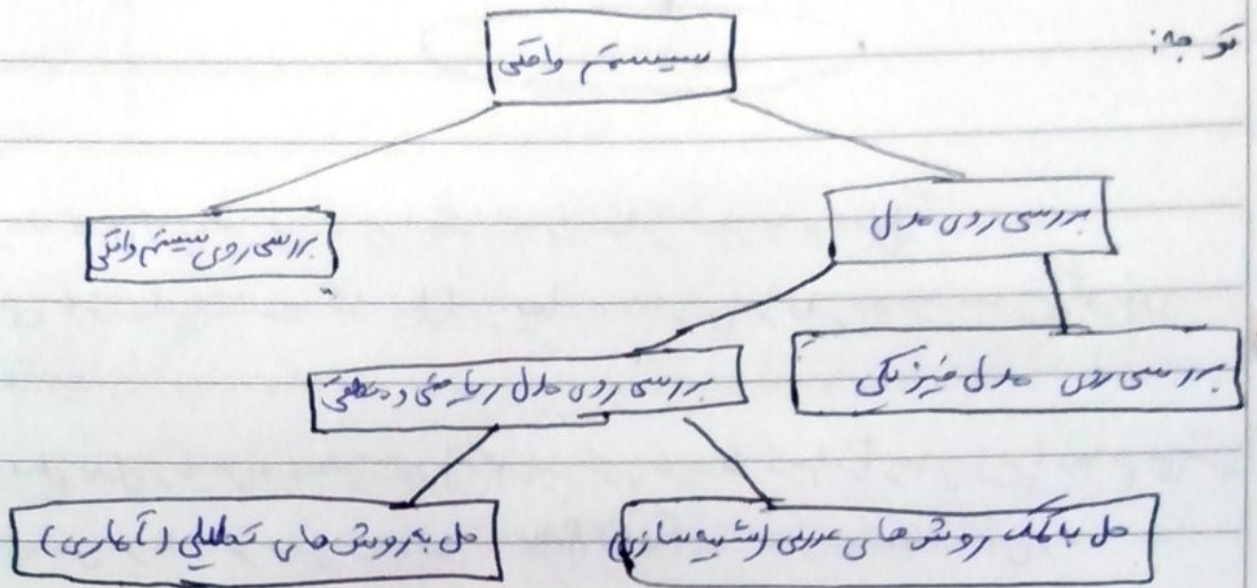 توجه:
سیستم واقعی
بررسی روی مدل
بررسی روی سیستم واقعی
بررسی روی مدل فیزیکی
بررسی روی مدل ریاضی و منطقی
حل باکمک روش های عددی (شبیه سازی)
حل به روش های تحلیلی (آماری)